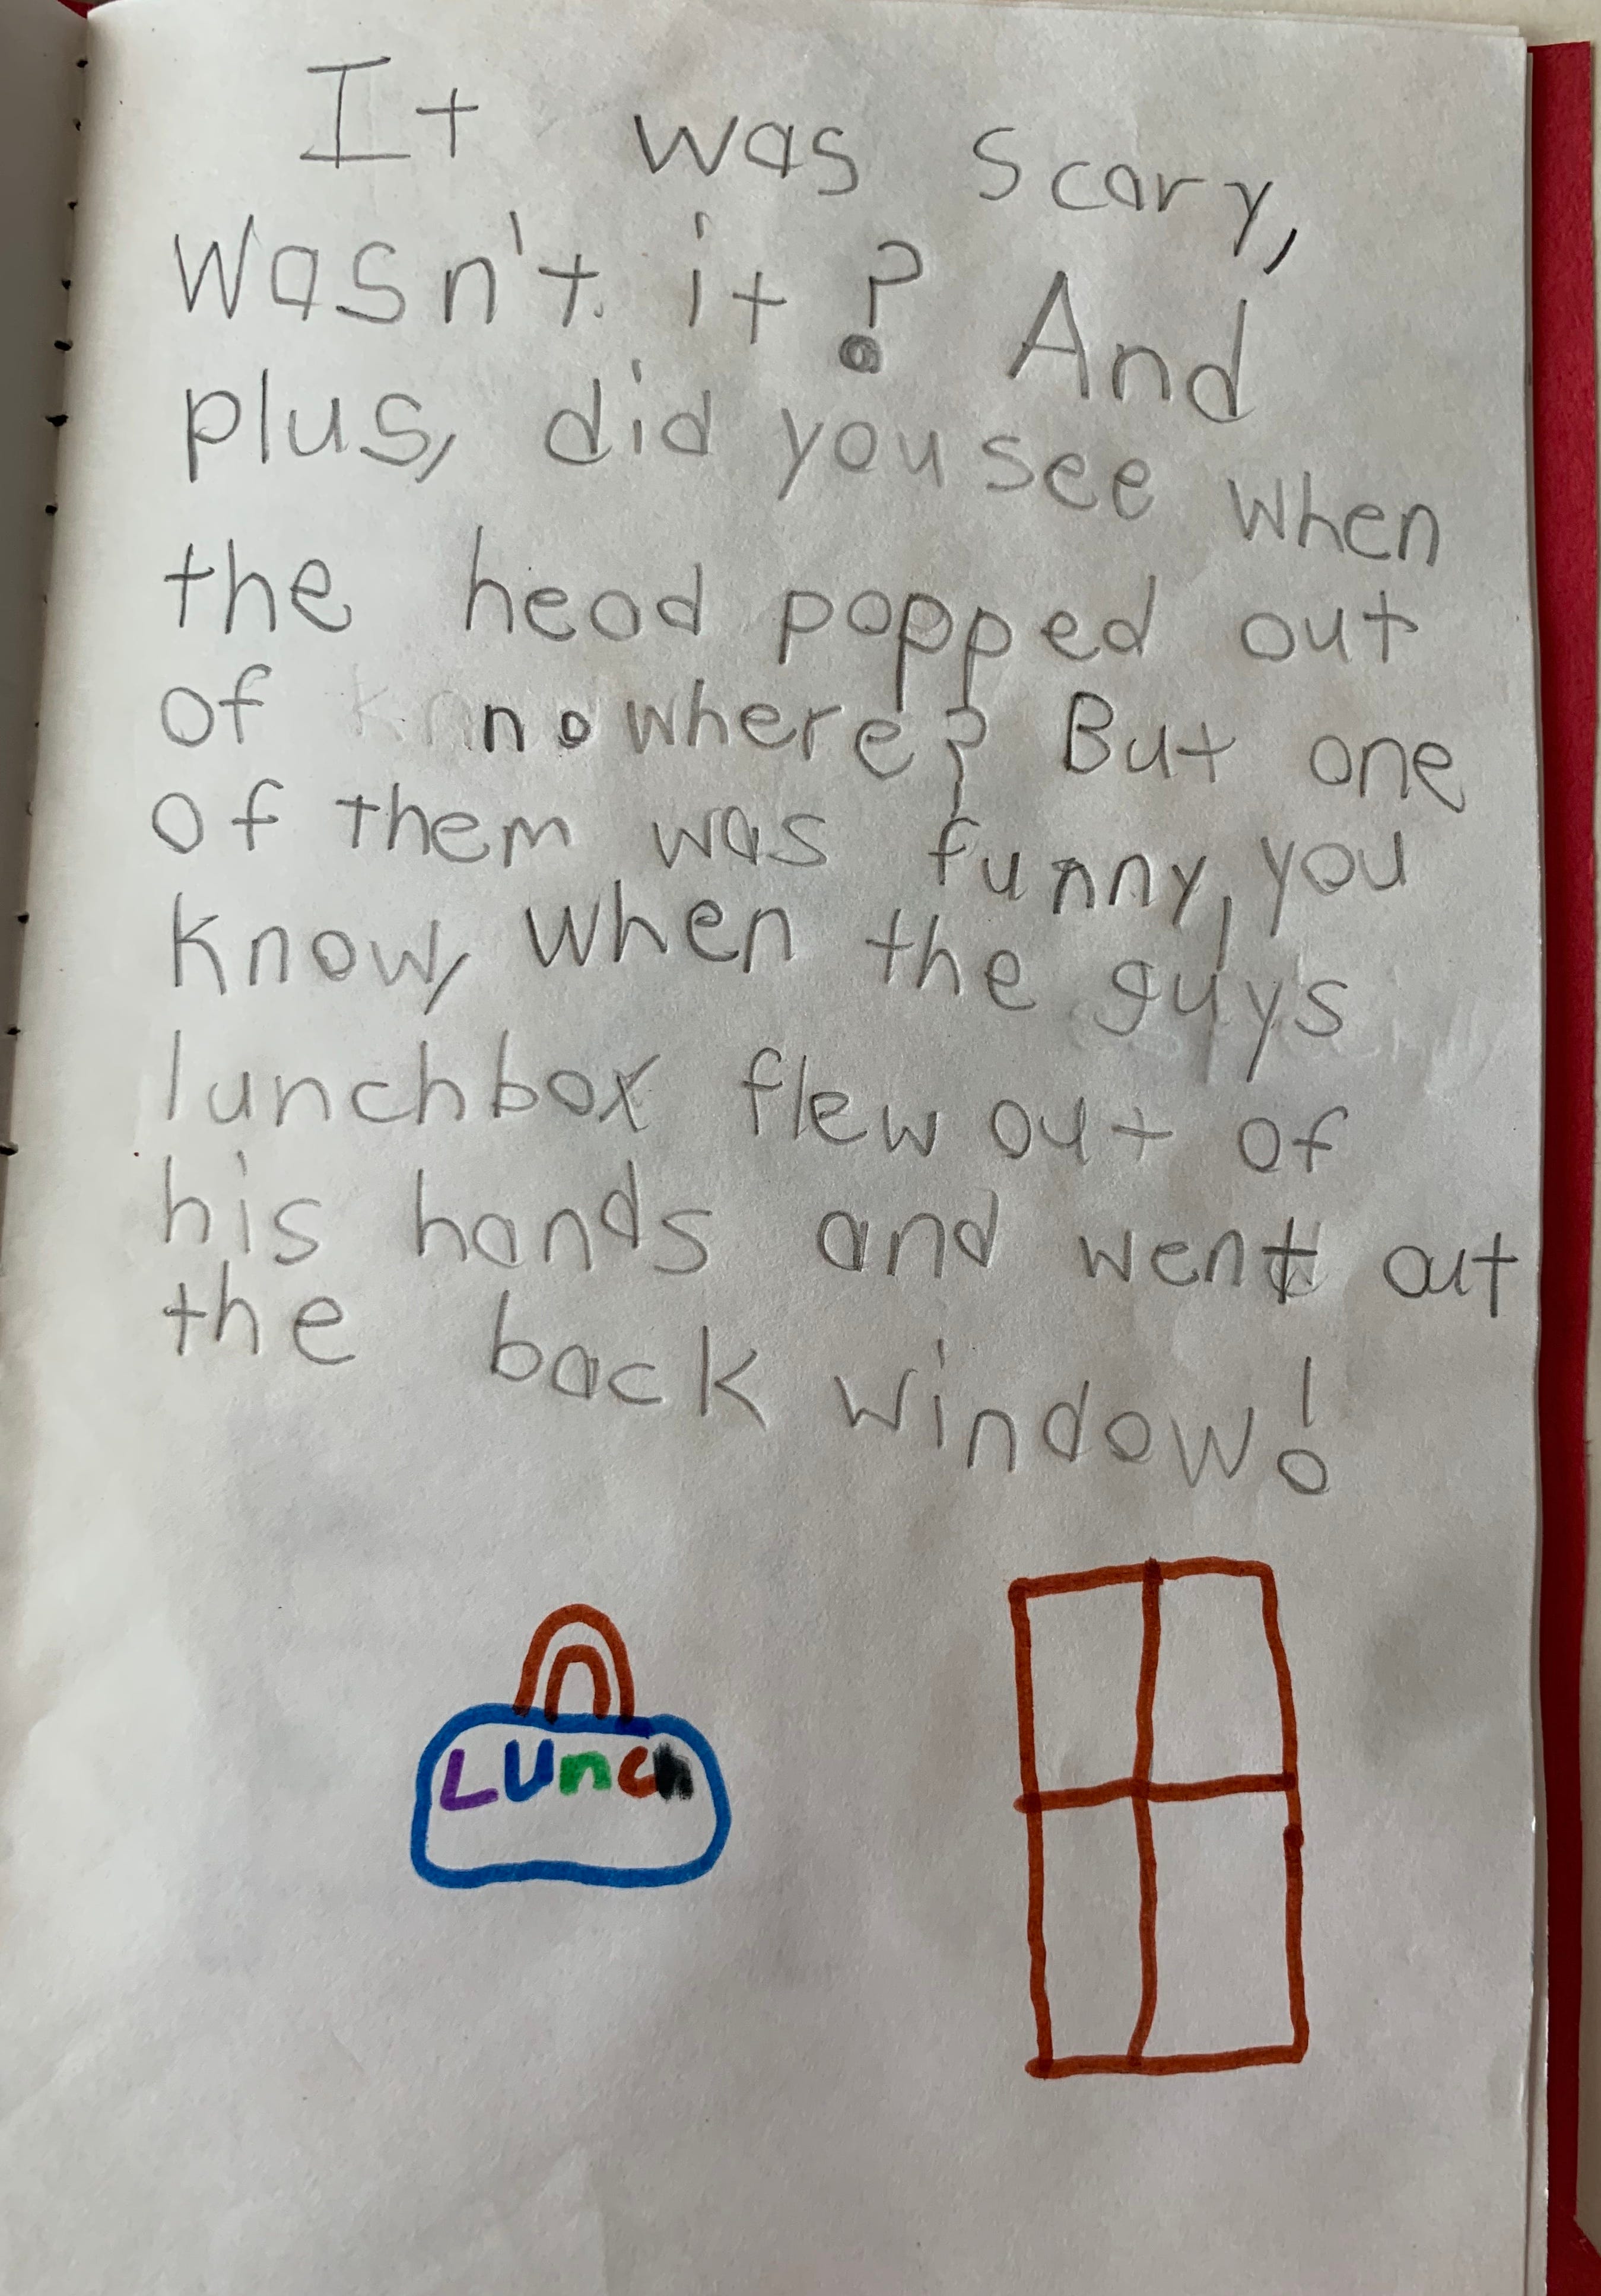 It was scary,
wasn't it? And
plus, did you see when
the head popped out
of nowhere? But one
of them was funny, you
know, when the guys
lunchbox flew out of
his hands and went out
the back window!
Lunch